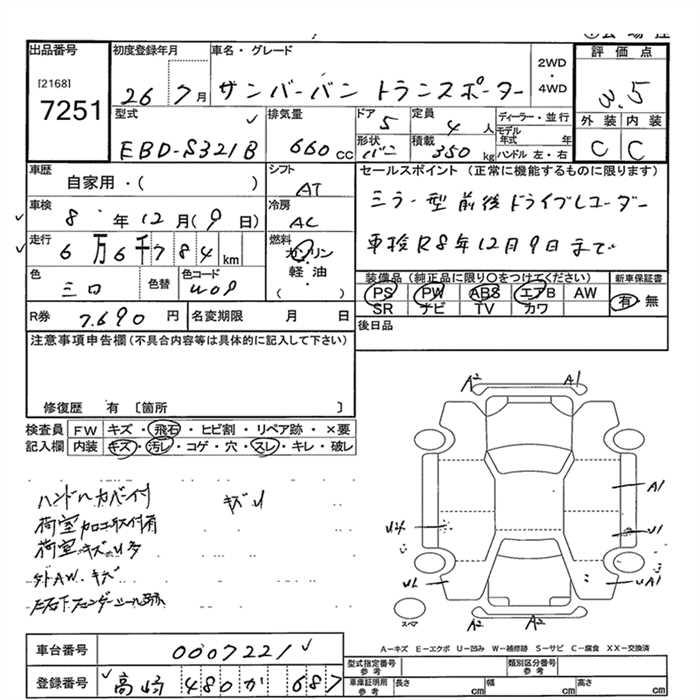 出品番号
[2168]
7251
初度登録年月
26 7月
車名・グレード
サンバーバン トランスポーター
2WD
・
4WD
評価点
3.5
外装 内装
C C
型式
EBD-S321B
排気量
660 cc
ドア
5
定員
4 人
形状
バン
積載
350 kg
ディーラー・並行
モデル
年式 年
ハンドル 左・右
車歴
自家用・( )
シフト
AT
車検
8 年 12月 (9日)
冷房
AC
走行
6万6千784 km
燃料
ガソリン
軽油
( )
色
シロ
色替
色コード
W09
R券
7,690 円
名変期限 月 日
セールスポイント (正常に機能するものに限ります)
ミラー型前後ドライブレコーダー
車検R8年12月9日まで
装備品(純正品に限り○をつけてください)
PS PW ABS エアB AW
SR ナビ TV カワ
新車保証書
有・無
後日品
注意事項申告欄(不具合内容等は具体的に記入して下さい)
修復歴 有 〔箇所 〕
検査員
記入欄
FW キズ・飛石・ヒビ割・リペア跡・×要
内装 キズ・汚レ・コゲ・穴・スレ・キレ・破レ
ハンドルカバー付
キズU
荷室加工取付有
荷室キズU多
外AW.キズ
A2 A1
A1
U4
U1
UL
UA1
スペア
A2 A2
A−キズ E−エクボ U−凹み W−補修跡 S−サビ C−腐食 XX−交換済
車台番号
0007221
登録番号
高崎 480 か 687
型式指定番号
参考
類別区分番号
参考
車庫証明用
参考
長さ cm
幅 cm
高さ cm